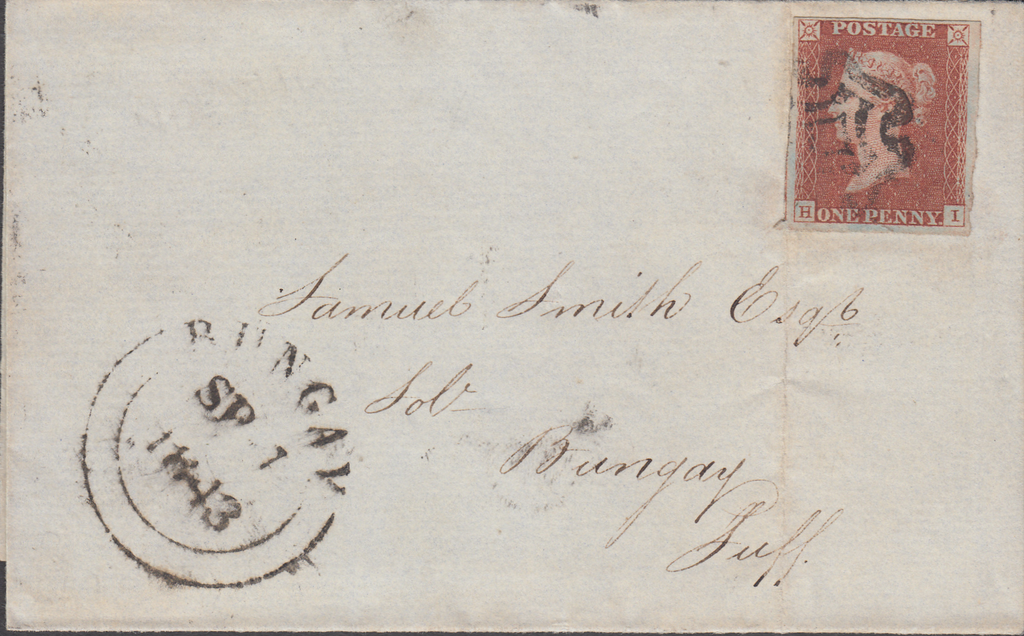 POSTAGE
ONE PENNY
H I
Samuel Smith Esqr
Solr
Bungay
Suff.
BUNGAY
SP 1
1843